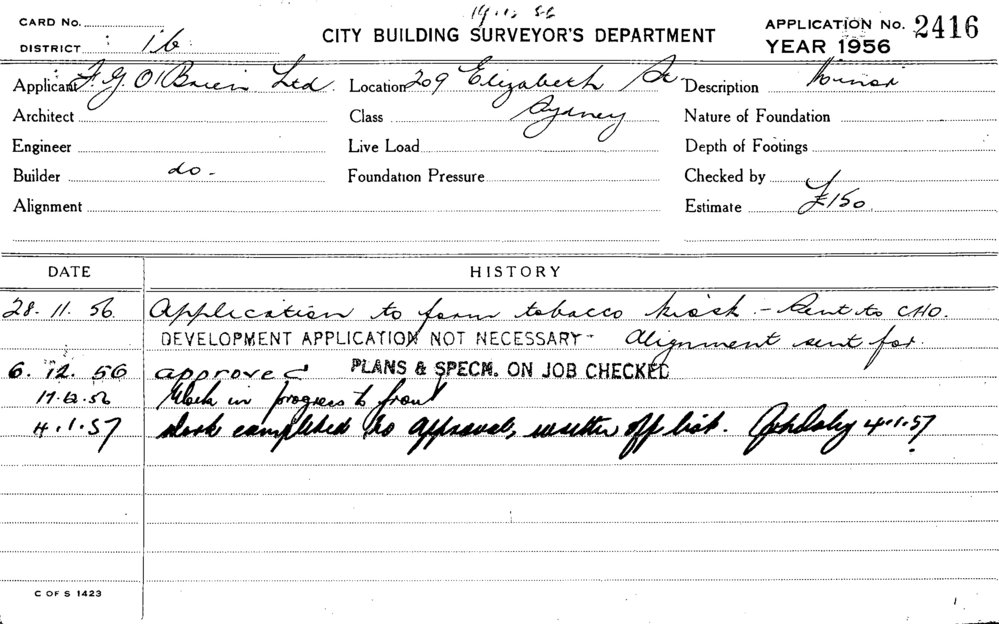 CARD No.
19.1.56
APPLICATION No. 2416
DISTRICT 16
CITY BUILDING SURVEYOR'S DEPARTMENT
YEAR 1956
Applicant F. G. O'Brien Ltd. Location 209 Elizabeth St Description Minor
Architect Class Sydney Nature of Foundation
Engineer Live Load Depth of Footings
Builder do. Foundation Pressure Checked by
Alignment Estimate £150
DATE HISTORY
28.11.56. Application to form tobacco kiosk - Sent to CHO.
DEVELOPMENT APPLICATION NOT NECESSARY - Alignment sent for.
6.12.56 approved PLANS & SPECN. ON JOB CHECKED
17.12.56 Work in progress to front
4.1.57 Work completed to approval, written off list. 4.1.57
C OF S 1423